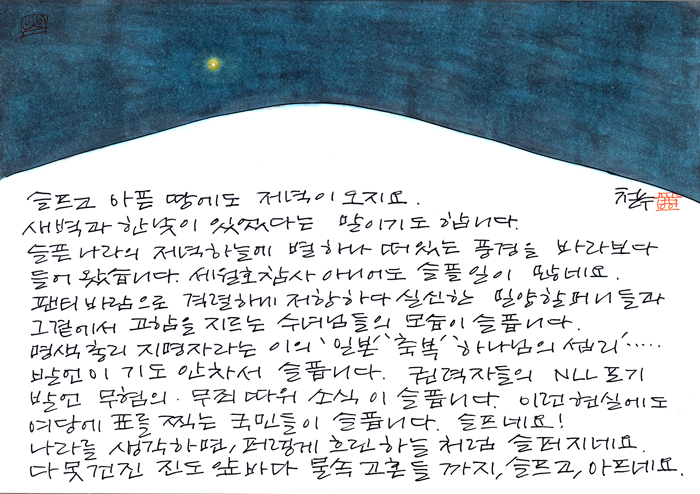 슬프고 아픈 땅에도 저녁이 오지요.
철수
새벽과 한낮이 있었다는 말이기도 합니다.
슬픈 나라의 저녁하늘에 별 하나 떠있는 풍경을 바라보다
들어 왔습니다. 세월호참사 아니어도 슬플 일이 많네요.
팬티바람으로 격렬하게 저항하다 실신한 밀양할머니들과
그곁에서 고함을 지르는 수녀님들의 모습이 슬픕니다.
명색총리 지명자라는 이의 '일본' '축복' '하나님의 섭리'.....
발언이 기도 안차서 슬픕니다. 권력자들의 NLL포기
발언 무혐의·무죄 따위 소식이 슬픕니다. 이런 현실에도
여당에 표를 찍는 국민들이 슬픕니다. 슬프네요!
나라를 생각하면, 퍼렇게 흐린하늘처럼 슬퍼지네요.
다 못건진 진도앞바다 물속 고혼들까지, 슬프고, 아프네요.